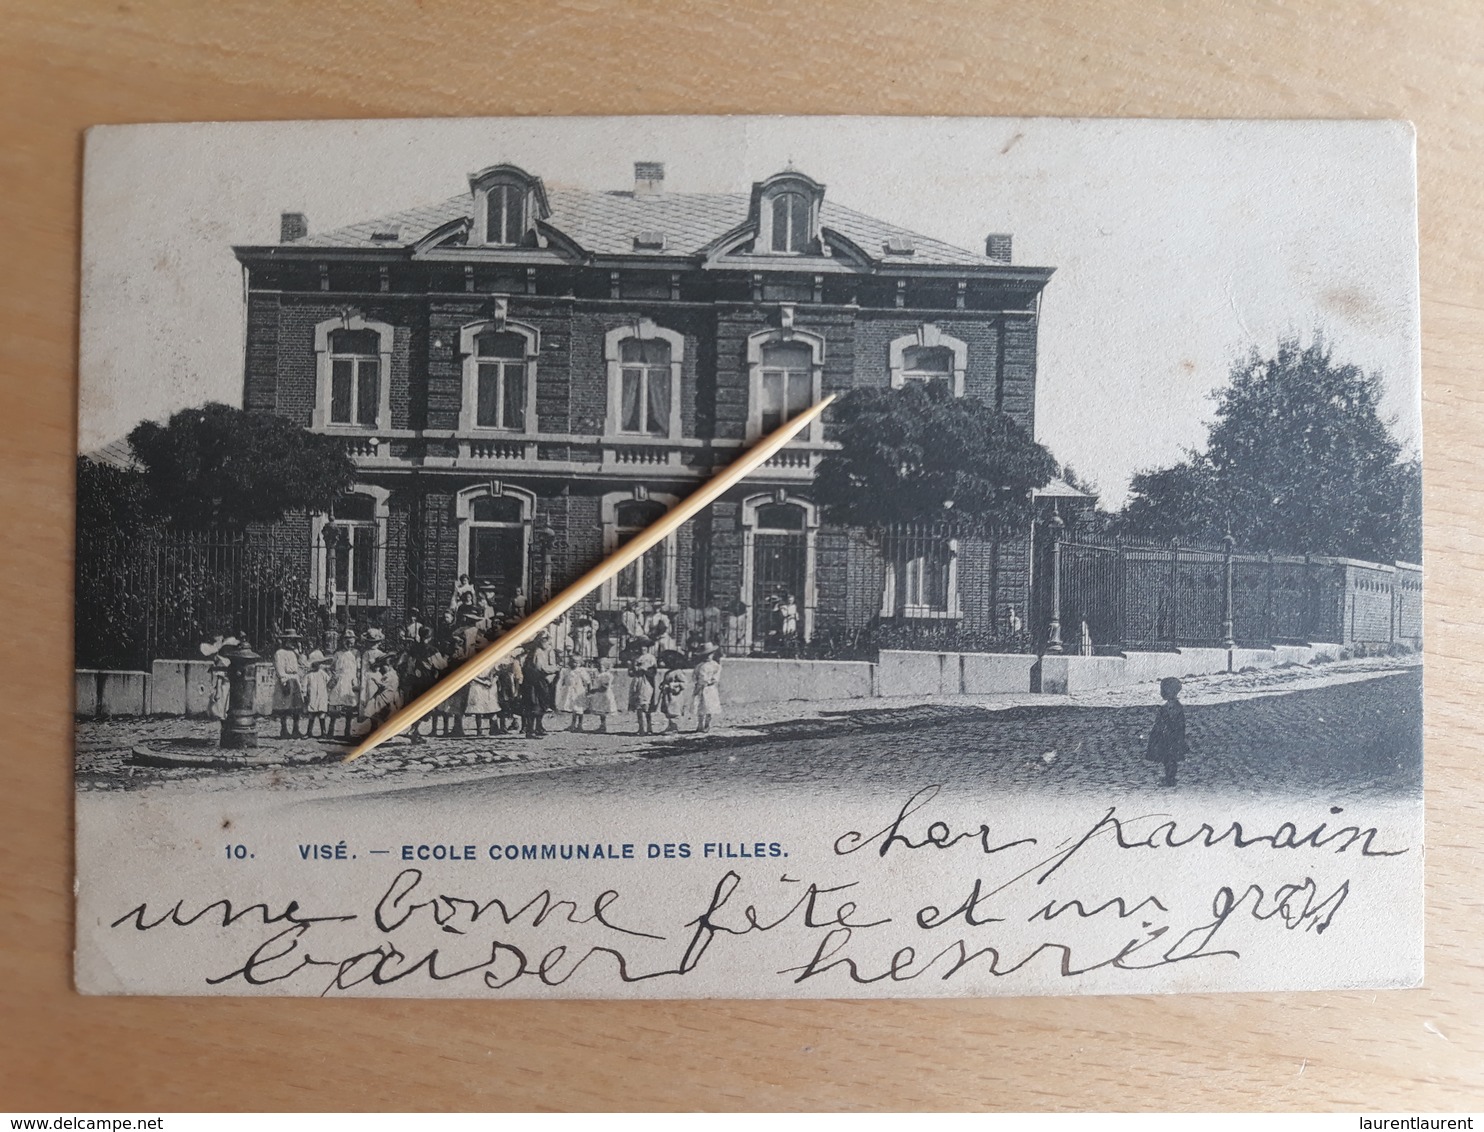 10. VISÉ. — ECOLE COMMUNALE DES FILLES.
cher parrain
une bonne fête et un gros
baiser henri
www.delcampe.net
laurentlaurent